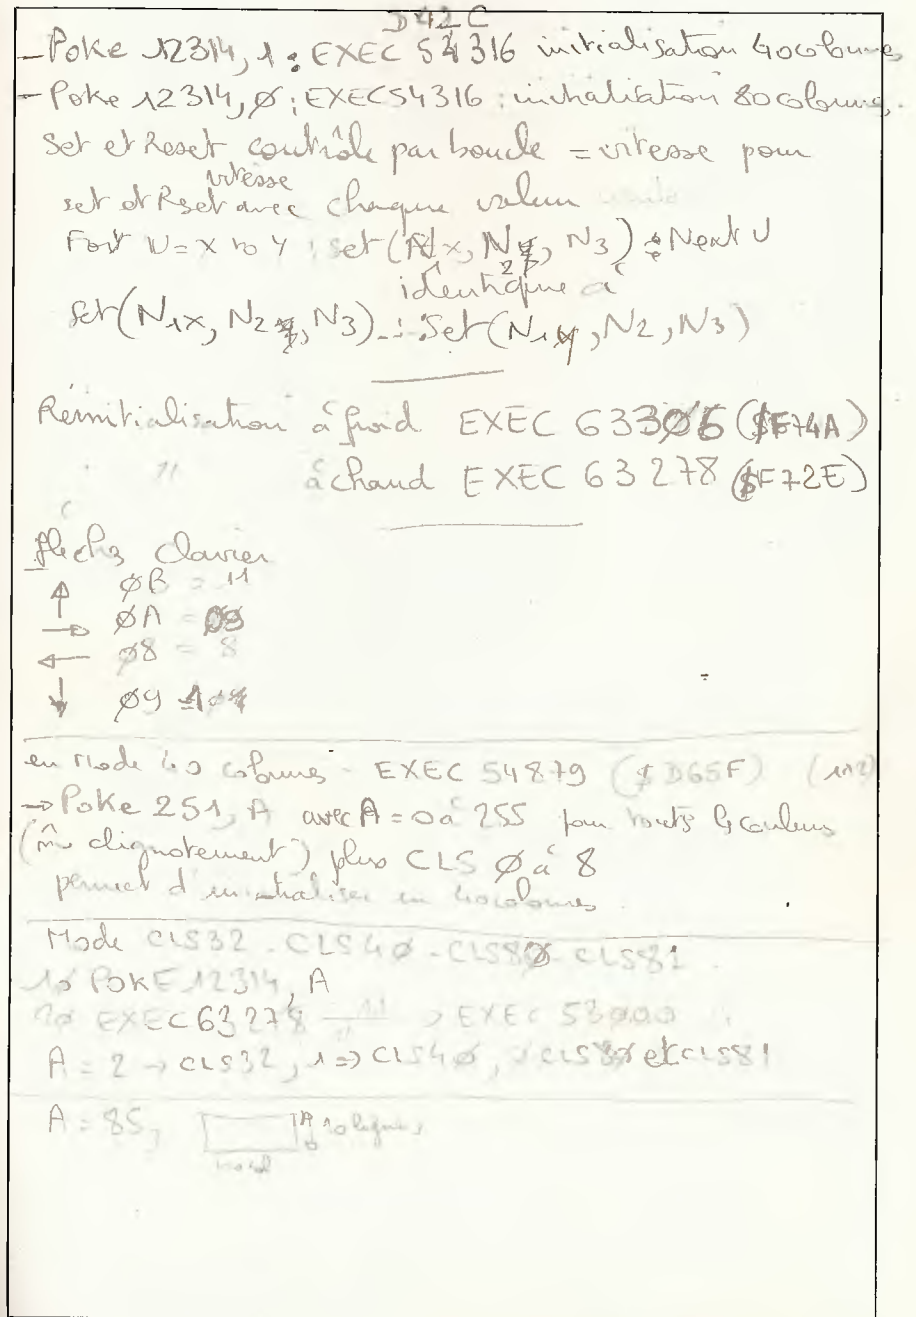 D42C
- Poke 12314, 1 : EXEC 54316 initialisation 40 colonnes
- Poke 12314, Ø : EXEC 54316 : initialisation 80 colonnes.
Set et Reset contrôle par boucle = vitesse pour
vitesse
set et Rset avec chaque valeur
For U = X to Y : set (Nx, N2, N3) : Next U
identique à
Set (N1x, N2, N3) -:- Set (N1y, N2, N3)
Réinitialisation à froid EXEC 63306 ($F74A)
" à chaud EXEC 63278 ($F72E)
flechs Clavier
↑ ØB = 11
→ ØA
← Ø8 = 8
↓ Ø9
en Mode 40 colonnes - EXEC 54879 ($D65F)
→ Poke 251, A avec A = 0 à 255 pour touts ls couleurs
(mm clignotement) plus CLS Ø à 8
permet d'initialiser en 40 colonnes.
Mode CLS32 - CLS4Ø - CLS8Ø - CLS81
1o POKE 12314, A
EXEC 63278
A = 2 → CLS32, 1 => CLS4Ø, CLS8Ø et CLS81
A = 85, 10 lignes